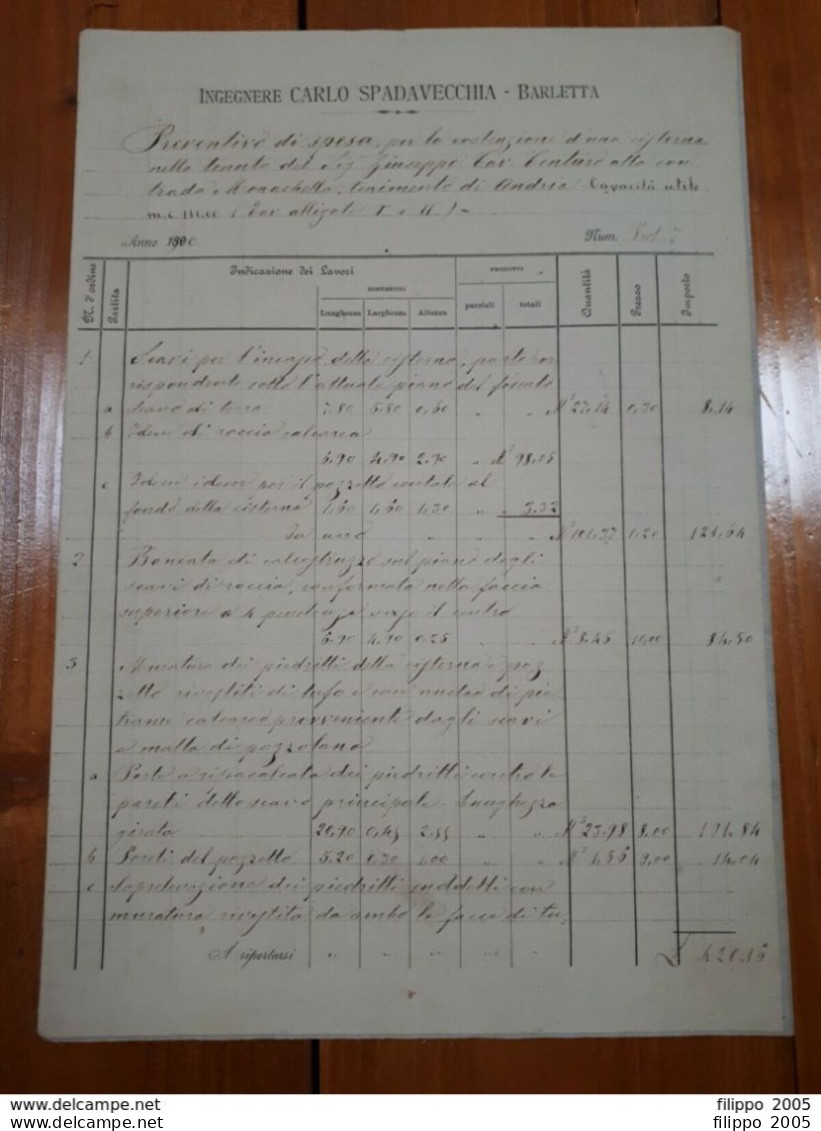 INGEGNERE CARLO SPADAVECCHIA - BARLETTA
Preventivo di spesa per la costruzione d'una cisterna
nella tenuta del Sig. Giuseppe Cav. Centaro alla con-
trada Monachella, tenimento di Andria. Capacità utile
m.c.
Anno 1900
Num.
N. d'ordine Partita Indicazione dei Lavori DIMENSIONI PRODOTTI Quantità Prezzo Importo
Lunghezza Larghezza Altezza parziali totali
1 Scavi per l'incasso della cisterna, parte cor-
rispondente sotto l'attuale piano del fossato
a Scavo di terra 7,80 5,80 0,60 " " M³ 27,14 0,30 8,14
b Idem di roccia calcarea
6,90 4,90 2,90 " M³ 98,05
c Idem idem per il pozzetto centrale al
fondo della cisterna 1,60 1,60 1,30 " " 3,32
In uno " " " M³ 101,37 1,20 121,64
2 Bancata di calcestruzzo sul piano degli
scavi di roccia, conformata nella faccia
superiore a 4 pendenze verso il centro
6,90 4,90 0,25 " " M³ 8,45 10,00 84,50
3 Muratura dei piedritti della cisterna e poz-
zetto rivestiti di tufo e con nucleo di pie-
trame calcareo proveniente dagli scavi
e malta di pozzolana
a Parte a ripa calcata dei piedritti contro le
pareti dello scavo principale. Lunghezza
girata 20,90 0,45 2,55 " " M³ 23,98 8,00 191,84
b Pareti del pozzetto 5,20 0,30 1,00 " " M³ 1,56 9,00 14,04
c Sopraelevazione dei piedritti suddetti con
muratura rivestita da ambo le facce di tu-
A riportarsi " " " " " " " £ 420,16
filippo 2005
filippo 2005